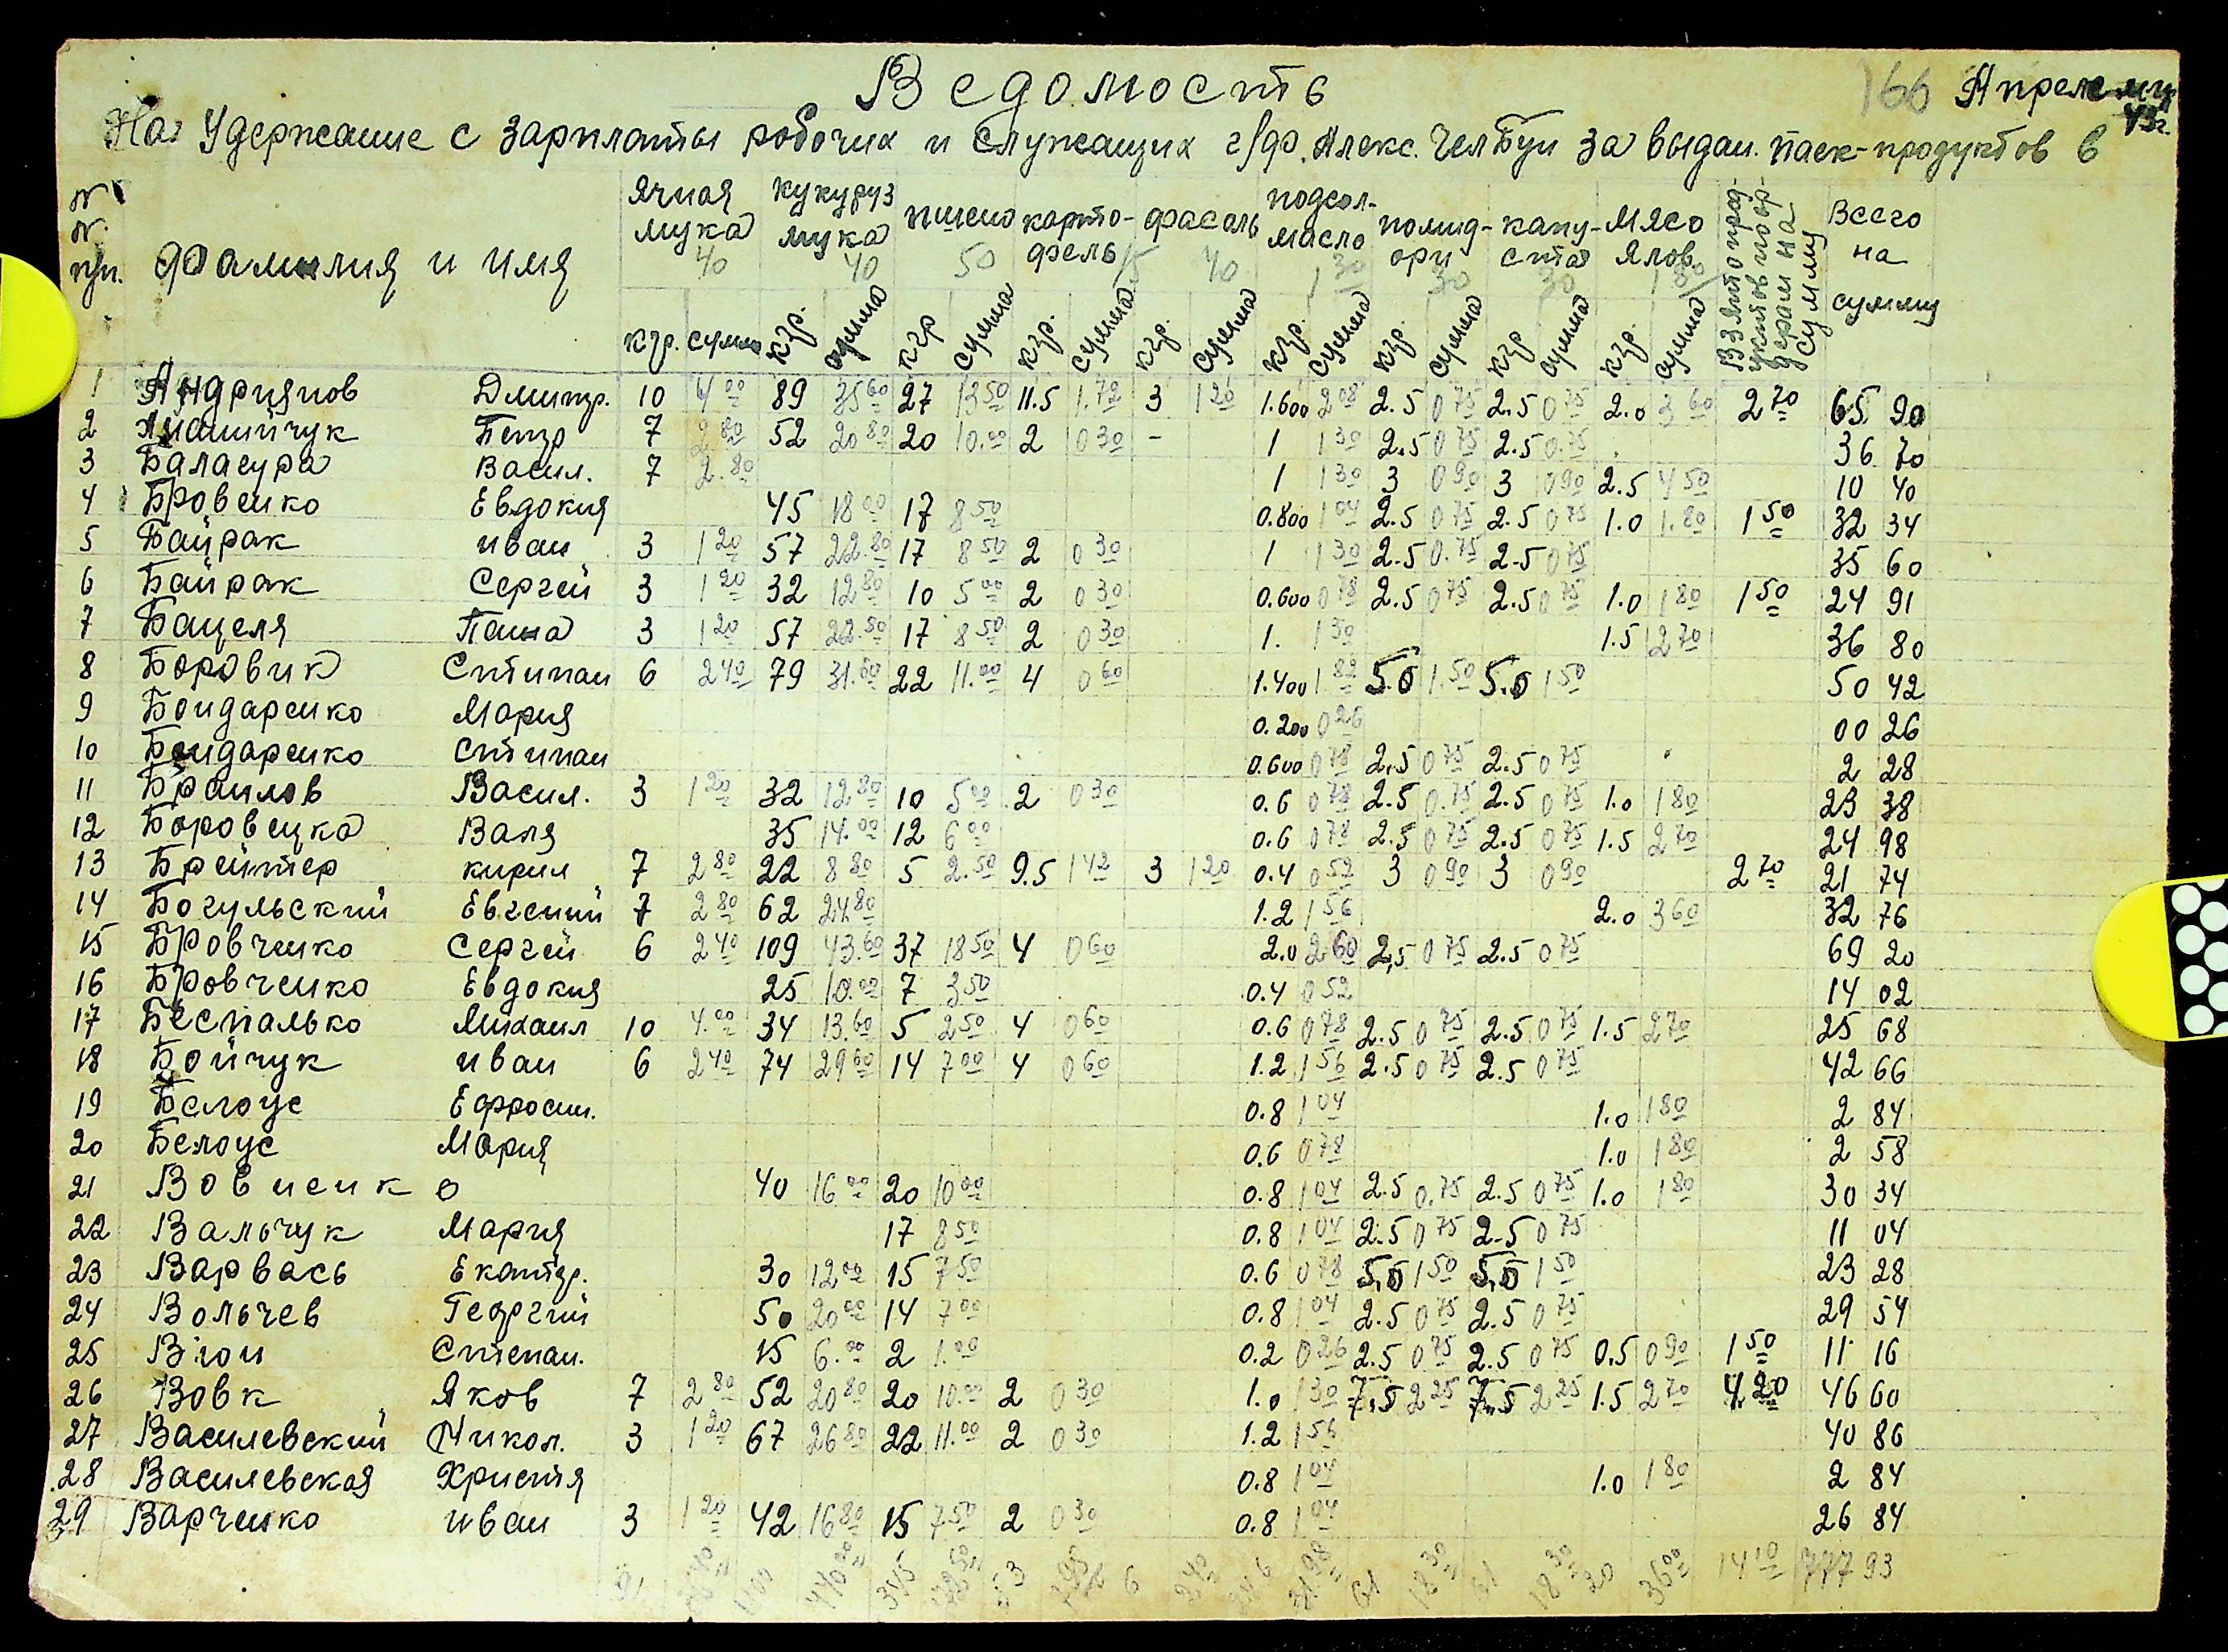 Ведомость
166 Апреле м-ца 43г.
На Удержание с зарплаты робочих и служащих г/ф. Алекс. Челбуи за выдан. паек-продуктов в
№ № пп. Фамилия и имя Ячная мука 40 кукуруз мука 40 пшено 50 картофель 15 фасоль 40 подсол-масло 1 30 помидори 30 капуста 30 Мясо Ялов. 1 80 Взято продуктов товаром на сумму Всего на сумму
кгр. сумма кгр. сумма кгр сумма кгр. сумма кгр. сумма кгр. сумма кгр. сумма кгр сумма кгр. сумма
1 Андриянов Дмитр. 10 4 00 89 35 60 27 13 50 11.5 1.72 3 1 20 1.600 2 08 2.5 0 75 2.5 0 75 2.0 3 60 2 70 65 20
2 Петр 7 2 80 52 20 80 20 10.00 2 0 30 - 1 1 30 2.5 0 75 2.5 0.75 36 70
3 Баласура Васил. 7 2.80 1 1 30 3 0 90 3 0 90 2.5 4 50 10 40
4 Бровенко Евдокия 45 18 00 17 8 50 0.800 1 04 2.5 0 75 2.5 0 75 1.0 1.80 1 50 32 34
5 Байрак иван 3 1 20 57 22.80 17 8 50 2 0 30 1 1 30 2.5 0.75 2.5 0 75 35 60
6 Байрак Сергей 3 1 20 32 12 80 10 5 00 2 0 30 0.600 0 78 2.5 0 75 2.5 0 75 1.0 1 80 1 50 24 91
7 Бацеля Паша 3 1 20 57 22.80 17 8 50 2 0 30 1. 1 30 1.5 2 70 36 80
8 Боровик Стипан 6 2 40 79 31.60 22 11.00 4 0 60 1.400 1 82 5.0 1.50 5.0 1 50 50 42
9 Бондаренко Мария 0.200 0 26 00 26
10 Бондаренко Стипан 0.600 0 78 2.5 0 75 2.5 0 75 2 28
11 Браилов Васил. 3 1 20 32 12 80 10 5 00 2 0 30 0.6 0 78 2.5 0.75 2.5 0 75 1.0 1 80 23 38
12 Боровецка Валя 35 14.00 12 6 00 0.6 0 78 2.5 0 75 2.5 0 75 1.5 2 70 24 98
13 Брейтер кирил 7 2 80 22 8 80 5 2.50 9.5 1 42 3 1 20 0.4 0 52 3 0 90 3 0 90 2 70 21 74
14 Богульский Евгений 7 2 80 62 24 80 1.2 1 56 2.0 3 60 32 76
15 Бровченко Сергей 6 2 40 109 43.60 37 18 50 4 0 60 2.0 2 60 2,5 0 75 2.5 0 75 69 20
16 Бровченко Евдокия 25 10.00 7 3 50 0.4 0 52 14 02
17 Беспалько Михаил 10 4.00 34 13.60 5 2 50 4 0 60 0.6 0 78 2.5 0 75 2.5 0 75 1.5 2 70 25 68
18 Бойчук иван 6 2 40 74 29 60 14 7 00 4 0 60 1.2 1 56 2.5 0 75 2.5 0 75 42 66
19 Белоус Ефросин. 0.8 1 04 1.0 1 80 2 84
20 Белоус Мария 0.6 0 78 1.0 1 80 2 58
21 Вовненко 40 16 00 20 10 00 0.8 1 04 2.5 0.75 2.5 0 75 1.0 1 80 30 34
22 Вальчук Мария 17 8 50 0.8 1 04 2.5 0 75 2.5 0 75 11 04
23 Варвась Екатер. 30 12 00 15 7 50 0.6 0 78 5,0 1 50 5,0 1 50 23 28
24 Вольчев Георгий 50 20 00 14 7 00 0.8 1 04 2.5 0 75 2.5 0 75 29 54
25 Вiон Степан. 15 6.00 2 1.00 0.2 0 26 2.5 0 75 2.5 0 75 0.5 0 90 1 50 11 16
26 Вовк Яков 7 2 80 52 20 80 20 10.00 2 0 30 1.0 1 30 7,5 2 25 7,5 2 25 1.5 2 70 4.20 46 60
27 Василевский Никол. 3 1 20 67 26 80 22 11.00 2 0 30 1.2 1 56 40 86
28 Василевская Христя 0.8 1 04 1.0 1 80 2 84
29 Варченко иван 3 1 20 42 16 80 15 7 50 2 0 30 0.8 1 04 26 84
345 6 2 40 61 18 30 61 18 30 20 36 00 14 10 777 93